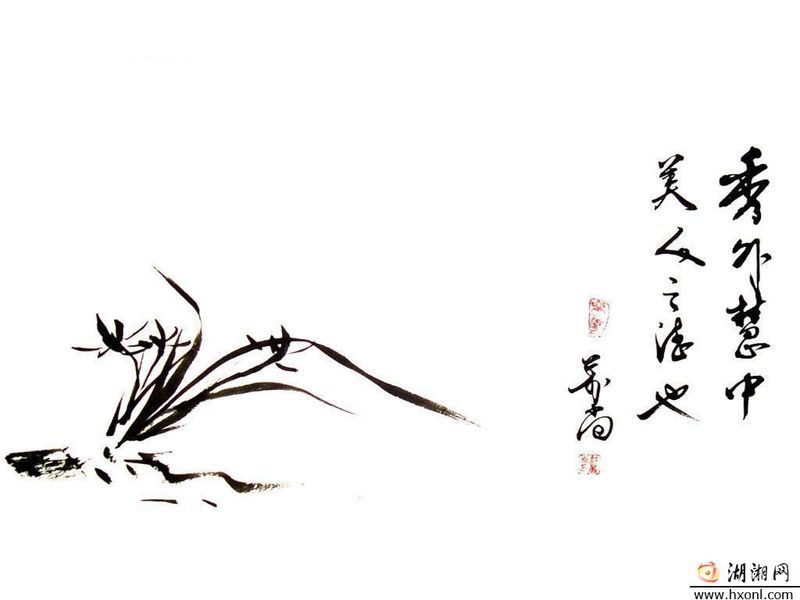 秀外慧中
美人之德也
湖湘网
www.hxonl.com